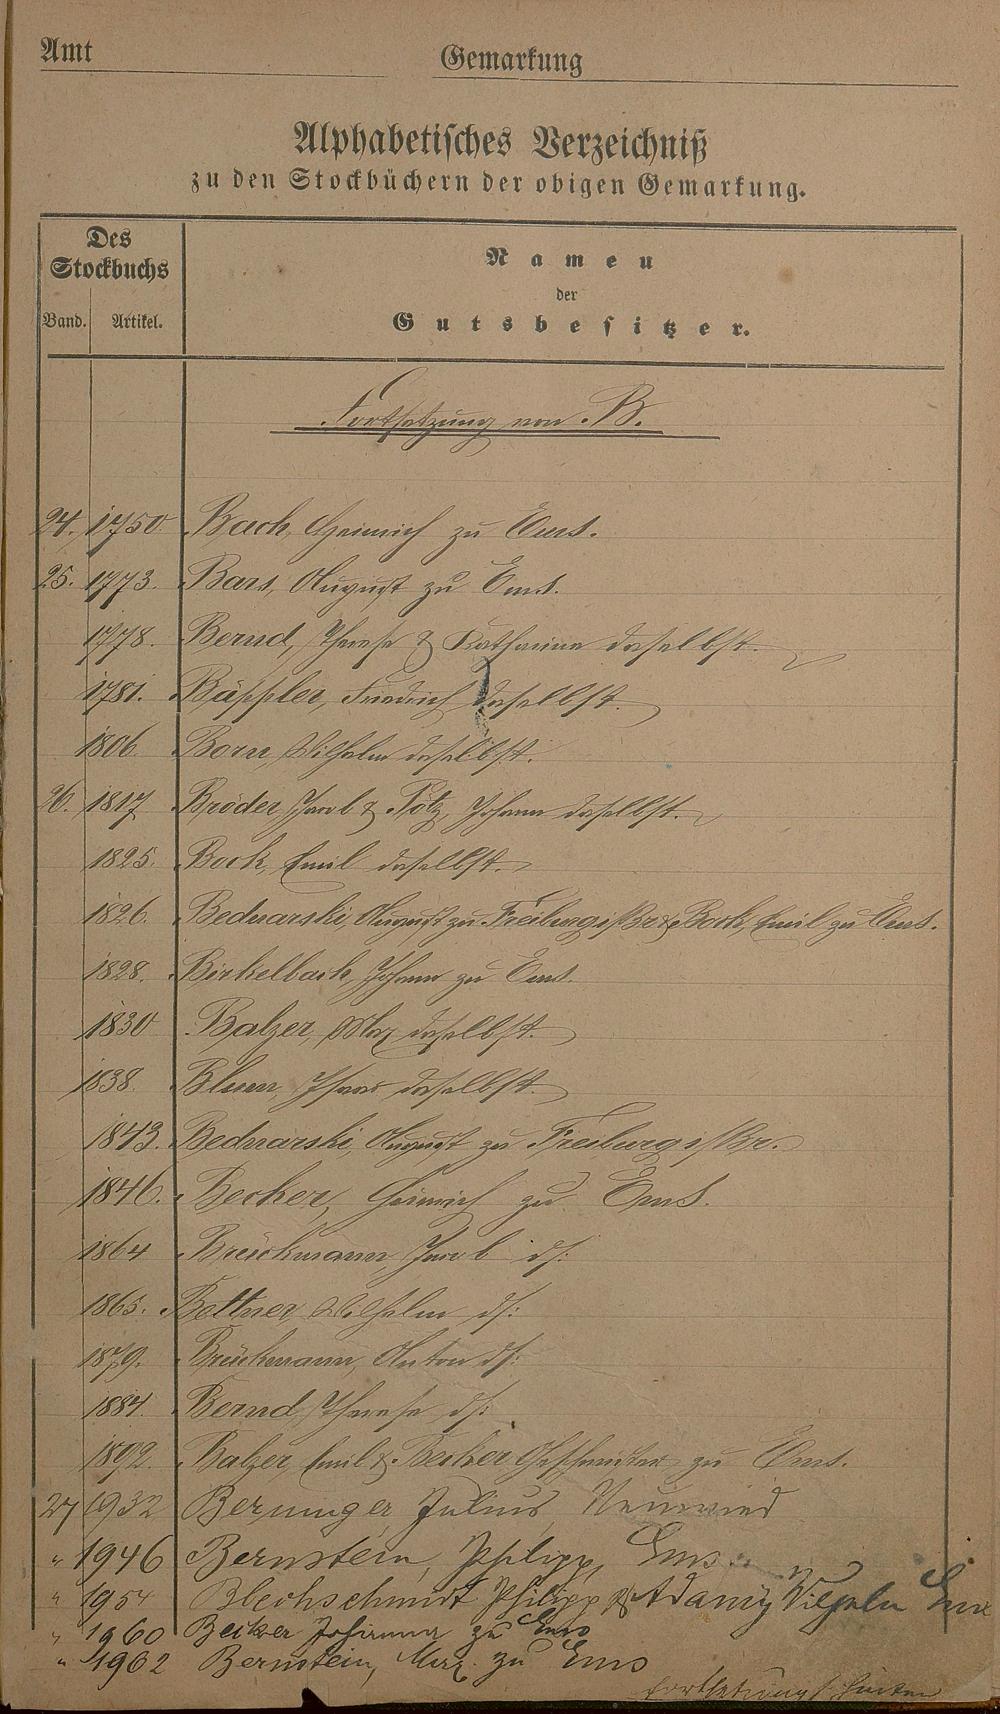 Amt Gemarkung
Alphabetisches Verzeichniß
zu den Stockbüchern der obigen Gemarkung.
Des
Stockbuchs
Band. Artikel.
Namen
der
Gutsbesitzer.
Fortsetzung von B.
24. 1750. Bach, Heinrich zu Ems.
25. 1773. Bars, August zu Ems.
1778. Bernd, Therese & Katharina daselbst.
1781. Bäppler, Friedrich daselbst.
1806. Born, Wilhelm daselbst.
26. 1817 Bröder, Jacob & Pötz, Johann daselbst.
1825. Bock, Emil daselbst.
1826. Bednarski, August zu Freiburg i/Br & Bock, Emil zu Ems.
1828. Birkelbach, Johann zu Ems.
1830 Balzer, Max daselbst.
1838. Blum, daselbst.
1843. Bednarski, August zu Freiburg i/Br.
1846. Becker, Heinrich zu Ems.
1864 Brückmann, Jacob ds:
1865. Bettner, Wilhelm ds:
1879. Brückmann, Anton ds:
1884. Bernd, Therese ds:
1892. Balzer, Emil & Becker Geschwister zu Ems.
27 1932 Berninger Julius, Neuwied
" 1946 Bernstein, Philipp, Ems.
" 1954 Blechschmidt Philipp & Adamy Wilhelm Ems
" 1960 Becker Johanna zu Ems
" 1962 Bernstein, Max zu Ems
Fortsetzung s. hinten